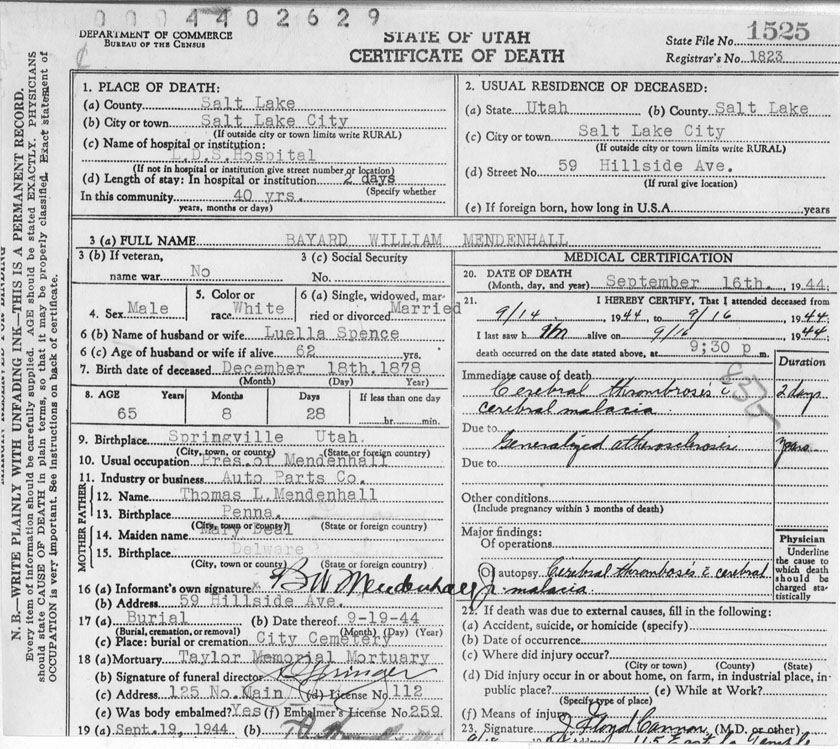 0004402629
DEPARTMENT OF COMMERCE
BUREAU OF THE CENSUS
STATE OF UTAH
CERTIFICATE OF DEATH
State File No. 1525
Registrar's No. 1823
N. B.—WRITE PLAINLY WITH UNFADING INK—THIS IS A PERMANENT RECORD.
Every item of information should be carefully supplied. AGE should be stated EXACTLY. PHYSICIANS
should state CAUSE OF DEATH in plain terms, so that it may be properly classified. Exact statement of
OCCUPATION is very important. See instructions on back of certificate.
1. PLACE OF DEATH:
(a) County Salt Lake
(b) City or town Salt Lake City
(If outside city or town limits write RURAL)
(c) Name of hospital or institution:
L.D.S. Hospital
(If not in hospital or institution give street number or location)
(d) Length of stay: In hospital or institution 2 days
(Specify whether
In this community 40 yrs.
years, months or days)
2. USUAL RESIDENCE OF DECEASED:
(a) State Utah (b) County Salt Lake
(c) City or town Salt Lake City
(If outside city or town limits write RURAL)
(d) Street No. 59 Hillside Ave.
(If rural give location)
(e) If foreign born, how long in U.S.A. years
3 (a) FULL NAME BAYARD WILLIAM MENDENHALL
3 (b) If veteran,
name war No
3 (c) Social Security
No.
4. Sex Male
5. Color or
race White
6 (a) Single, widowed, mar-
ried or divorced Married
6 (b) Name of husband or wife Luella Spence
6 (c) Age of husband or wife if alive 62 yrs.
7. Birth date of deceased December 18th. 1878
(Month) (Day) Year)
8. AGE Years Months Days If less than one day
65 8 28 hr. min.
9. Birthplace Springville Utah.
(City, town, or county) (State or foreign country)
10. Usual occupation Pres. of Mendenhall
11. Industry or business Auto Parts Co.
FATHER
12. Name Thomas L. Mendenhall
13. Birthplace Penna.
(City, town or county) (State or foreign country)
MOTHER
14. Maiden name Mary Deal
15. Birthplace Delaware
(City, town or county) (State or foreign country)
16 (a) Informant's own signature x B W Mendenhall Jr
(b) Address 59 Hillside Ave.
17 (a) Burial (b) Date thereof 9-19-44
(Burial, cremation, or removal) (Month) (Day) (Year)
(c) Place: burial or cremation City Cemetery
18 (a) Mortuary Taylor Memorial Mortuary
(b) Signature of funeral director
(c) Address 125 No. Main (d) License No. 112
(e) Was body embalmed? Yes (f) Embalmer's License No. 259
19 (a) Sept. 19, 1944 (b)
MEDICAL CERTIFICATION
20. DATE OF DEATH
(Month, day, and year) September 16th. , 1944:
21. I HEREBY CERTIFY, That I attended deceased from
9/14 1944 to 9/16 1944:
I last saw h im alive on 9/16 1944:
death occurred on the date stated above, at 9;30 p m.
Duration
Immediate cause of death
Cerebral thrombosis c̄ 2 days
cerebral malacia.
Due to
Generalized atherosclerosis years
Due to
Other conditions
(Include pregnancy within 3 months of death)
Major findings:
Of operations
Of autopsy Cerebral thrombosis c̄ cerebral
malacia.
Physician
Underline
the cause to
which death
should be
charged sta-
tistically
22. If death was due to external causes, fill in the following:
(a) Accident, suicide, or homicide (specify)
(b) Date of occurrence
(c) Where did injury occur?
(City or town) (County) (State)
(d) Did injury occur in or about home, on farm, in industrial place, in
public place? (e) While at Work?
(Specify type of place)
(f) Means of injury
23. Signature J Floyd Cannon (M.D. or other)